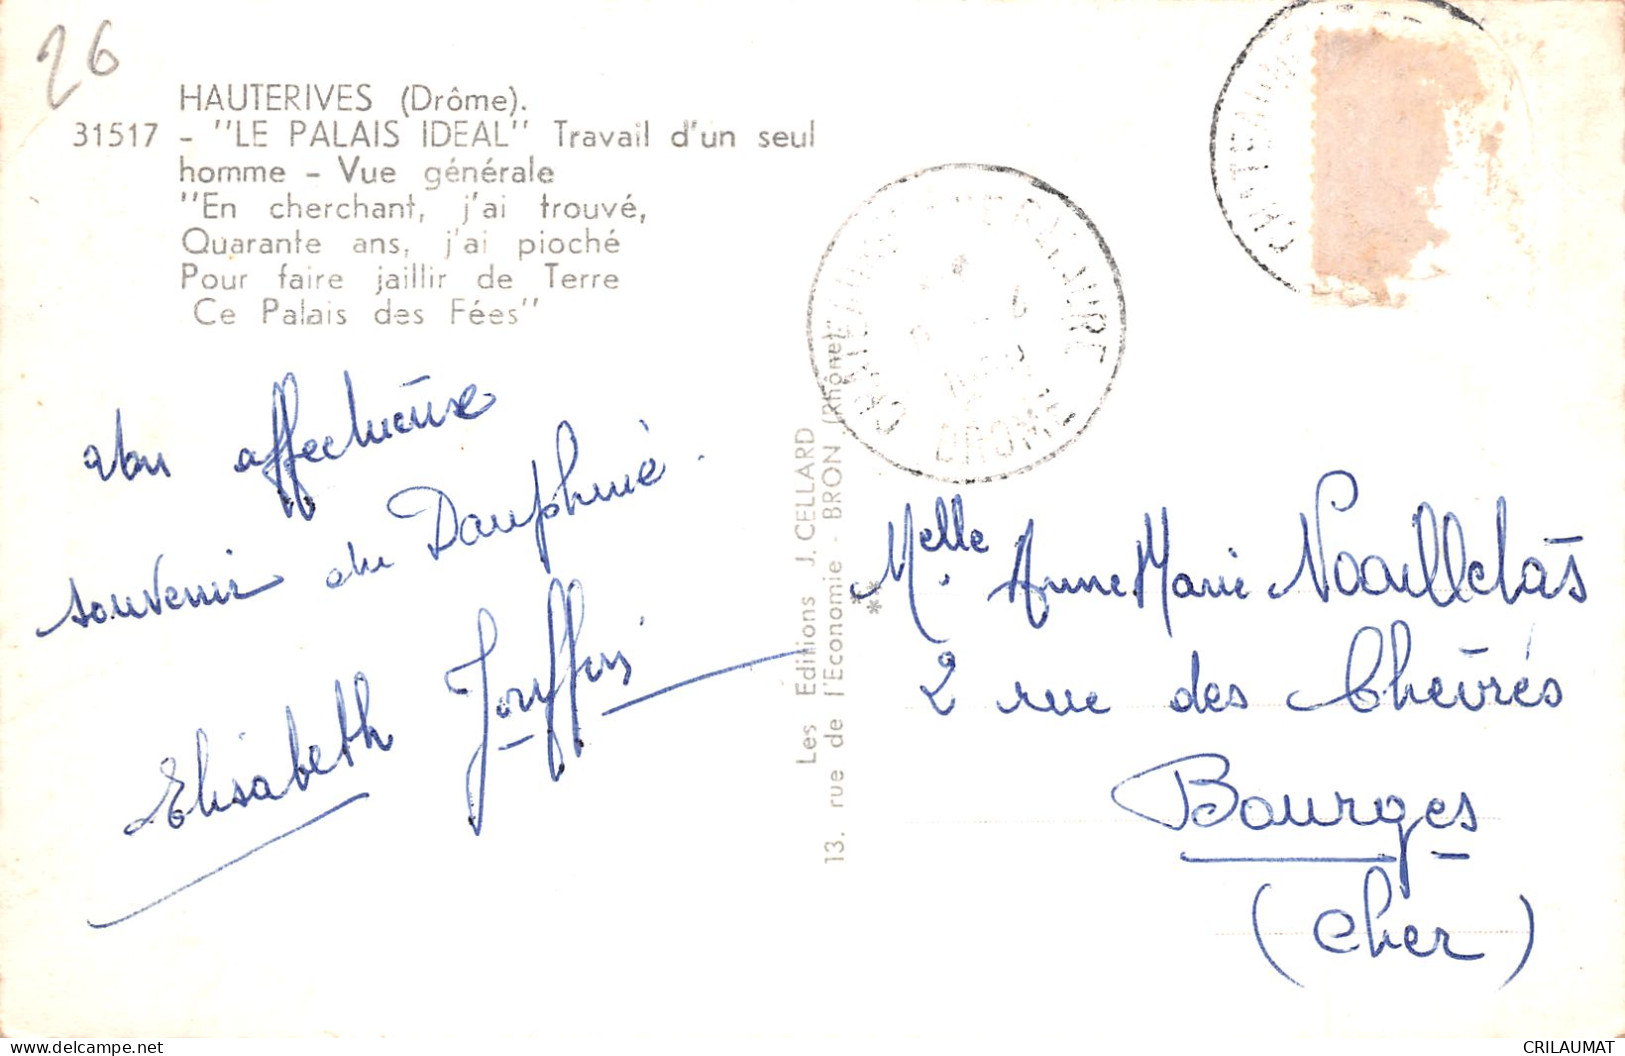 26
HAUTERIVES (Drôme).
31517 - "LE PALAIS IDEAL" Travail d'un seul
homme - Vue générale
"En cherchant, j'ai trouvé,
Quarante ans, j'ai pioché
Pour faire jaillir de Terre
Ce Palais des Fées"
affectueux
souvenir du Dauphiné.
Elisabeth Jouffrey
Les Editions J. CELLARD
13, rue de l'Economie - BRON (Rhône)
CHATEAUNEUF DE GALAURE
DROME
CHATEAUN
Melle Anne Marie Noaillelas
2 rue des Chèvres
Bourges
(Cher)
Delcampe.net
CRILAUMAT